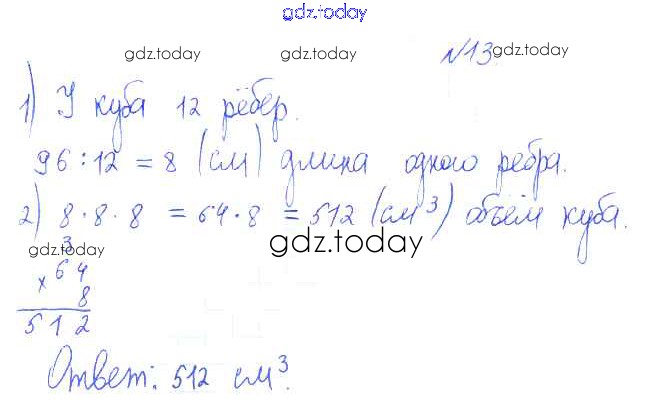 gdz.today
gdz.today gdz.today №13 gdz.today
1) У куба 12 рёбер.
96 : 12 = 8 (см) длина одного ребра.
2) 8 · 8 · 8 = 64 · 8 = 512 (см³) объём куба.
gdz.today
3
× 64
8
512
Ответ: 512 см³.